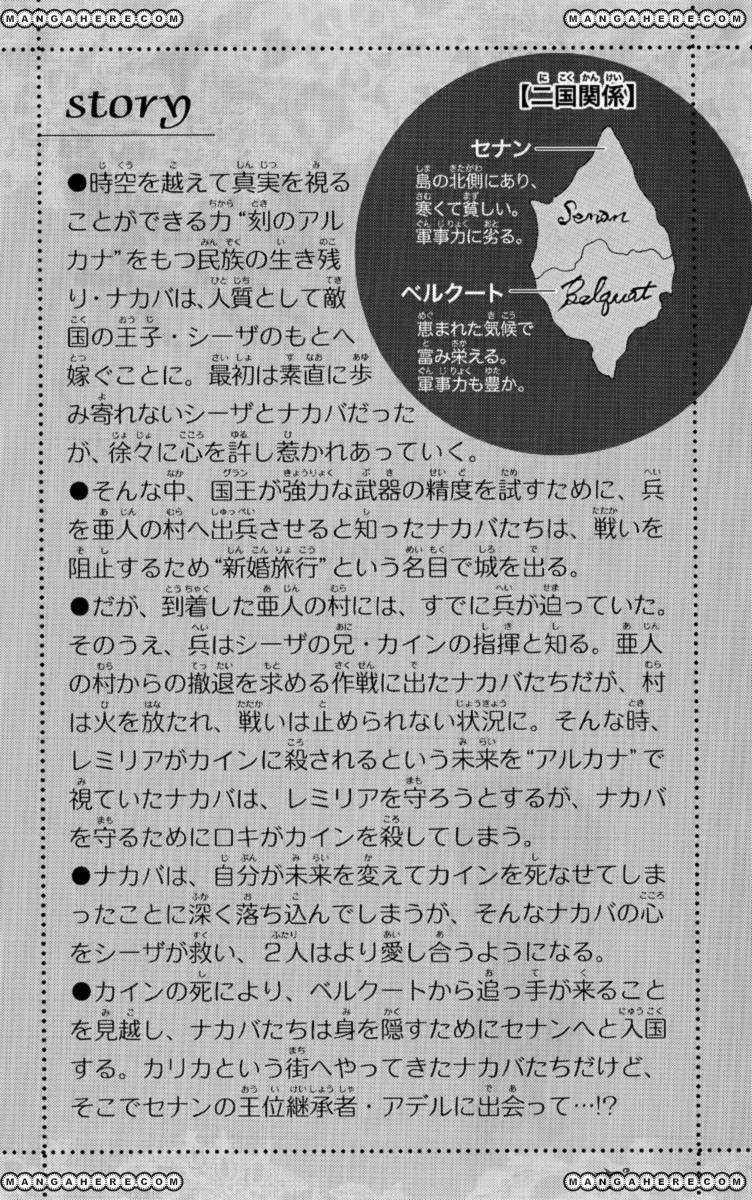 MANGAHERE.COM
MANGAHERE.COM
story
【二国関係】
セナン
島の北側にあり、
寒くて貧しい。
軍事力に劣る。
Senan
ベルクート
恵まれた気候で
富み栄える。
軍事力も豊か。
Belquat
●時空を越えて真実を視る
ことができる力“刻のアル
カナ”をもつ民族の生き残
り・ナカバは、人質として敵
国の王子・シーザのもとへ
嫁ぐことに。最初は素直に歩
み寄れないシーザとナカバだった
が、徐々に心を許し惹かれあっていく。
●そんな中、国王が強力な武器の精度を試すために、兵
を亜人の村へ出兵させると知ったナカバたちは、戦いを
阻止するため“新婚旅行”という名目で城を出る。
●だが、到着した亜人の村には、すでに兵が迫っていた。
そのうえ、兵はシーザの兄・カインの指揮と知る。亜人
の村からの撤退を求める作戦に出たナカバたちだが、村
は火を放たれ、戦いは止められない状況に。そんな時、
レミリアがカインに殺されるという未来を“アルカナ”で
視ていたナカバは、レミリアを守ろうとするが、ナカバ
を守るためにロキがカインを殺してしまう。
●ナカバは、自分が未来を変えてカインを死なせてしま
ったことに深く落ち込んでしまうが、そんなナカバの心
をシーザが救い、２人はより愛し合うようになる。
●カインの死により、ベルクートから追っ手が来ること
を見越し、ナカバたちは身を隠すためにセナンへと入国
する。カリカという街へやってきたナカバたちだけど、
そこでセナンの王位継承者・アデルに出会って…!?
MANGAHERE.COM
MANGAHERE.COM